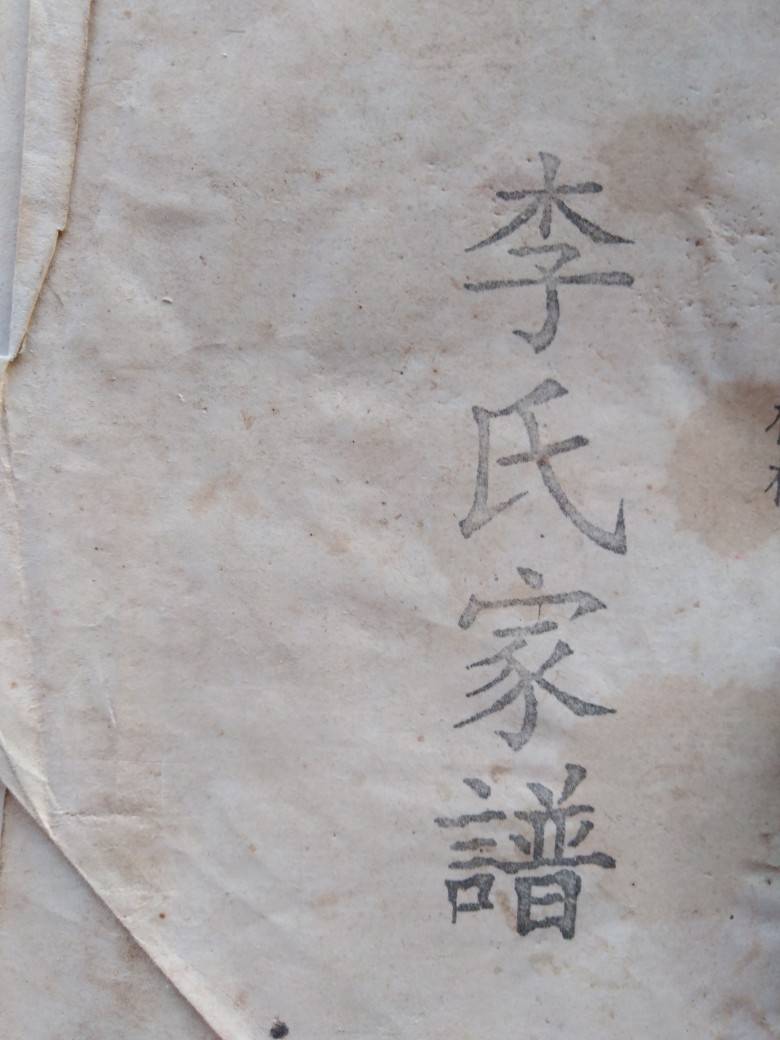 李氏家譜